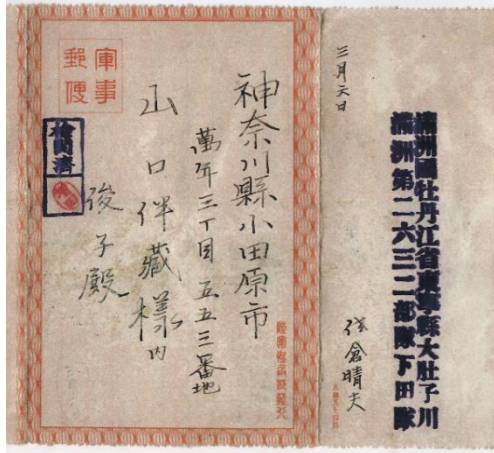 軍事
郵便
検閲済
神奈川縣小田原市
萬年三丁目五五三番地
山口伴藏様内
俊子殿
三月六日
満洲國牡丹江省東寧縣大肚子川
満洲第二六三二部隊下田隊
倉晴夫